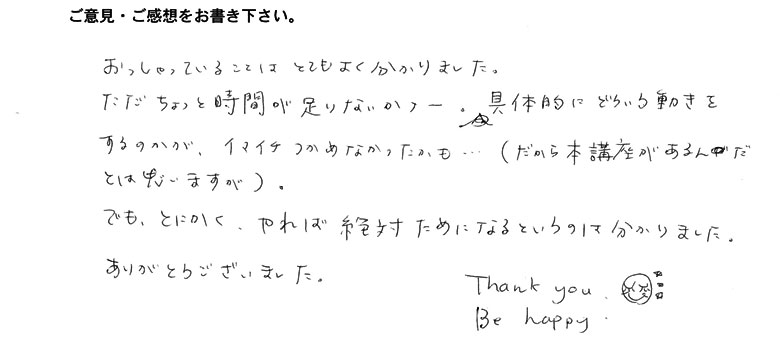 ご意見・ご感想をお書き下さい。
おっしゃっていることはとてもよく分かりました。
ただちょっと時間が足りないかなー。具体的にどういう動きを
するのかが、イマイチつかめなかったかも…(だから本講座があるんだ
とは思いますが)。
でも、とにかく、やれば絶対ためになるというのは分かりました。
ありがとうございました。
Thank you.
Be happy.